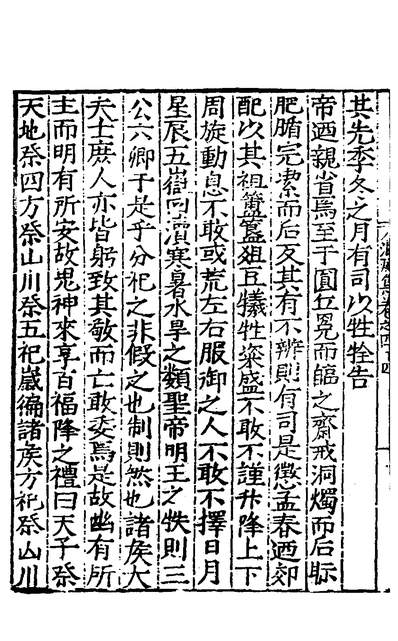 其先季冬之月有司以牲牷告
帝迺親省焉至于圜丘冕而臨之齋戒洞燭而后眎
肥腯完潔而后及其有不辨則有司是懲孟春迺郊
配以其祖簠簋俎豆犧牲粢盛不敢不謹升降上下
周旋動息不敢或荒左右服御之人不敢不擇日月
星辰五嶽四瀆寒暑水旱之類聖帝明王之帙則三
公六卿于是乎分祀之非假之也制則然也諸矦大
夫士庶人亦皆躬致其敬而亡敢委焉是故幽有所
主而明有所安故鬼神來享百福降之禮曰天子祭
天地祭四方祭山川祭五祀嵗徧諸矦方祀祭山川